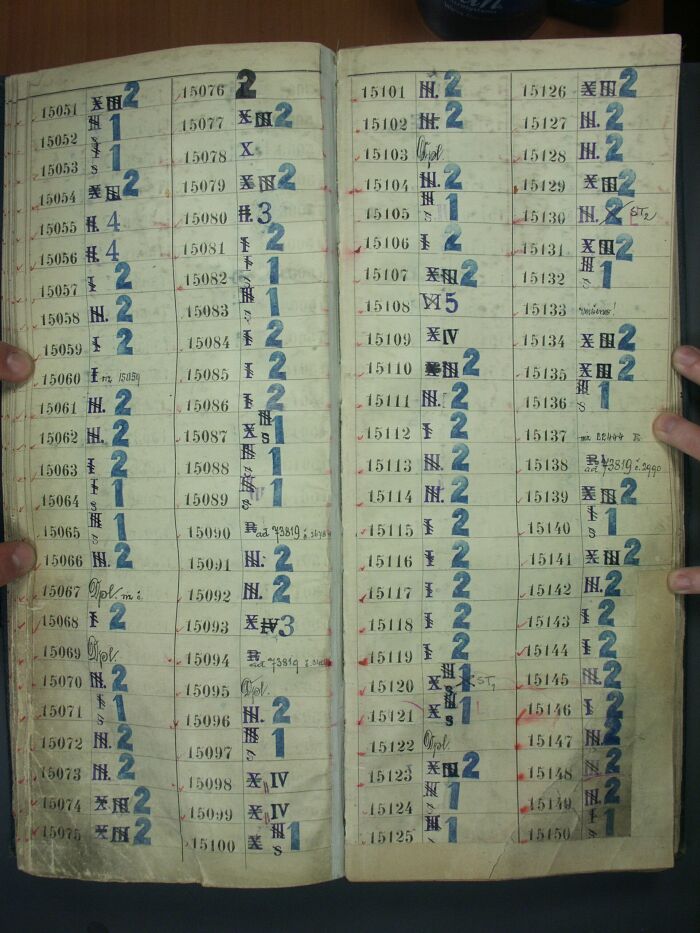 15051 X III 2
15052 II 1
15053 I s 1
15054 X III 2
15055 II. 4
15056 II. 4
15057 I 2
15058 III. 2
15059 I 2
15060 I m 15059
15061 III. 2
15062 III. 2
15063 I 2
15064 I s 1
15065 III s 1
15066 III. 2
15067 Dpl. m č.
15068 I 2
15069 Dpl.
15070 III. 2
15071 I s 1
15072 III. 2
15073 III. 2
15074 X III 2
15075 X III 2
15076 2
15077 X III 2
15078 X
15079 X IV 2
15080 II. 3
15081 I 2
15082 I 1
15083 III 1
15084 I 2
15085 I 2
15086 I 2
15087 X III s 1
15088 III s 1
15089 III s 1
15090 R ad 73819
15091 III. 2
15092 III. 2
15093 X IV 3
15094 R ad 73819
15095 Dpl.
15096 III. 2
15097 III s 1
15098 X IV
15099 X IV
15100 X III s 1
15101 III. 2
15102 III. 2
15103 Dpl.
15104 III. 2
15105 III s 1
15106 I 2
15107 X III 2
15108 VI 5
15109 X IV
15110 III 2
15111 III. 2
15112 I 2
15113 III. 2
15114 III. 2
15115 I 2
15116 I 2
15117 I 2
15118 I 2
15119 I 2
15120 X III s 1 ST1
15121 X III s 1
15122 Dpl.
15123 X III 2
15124 III s 1
15125 III 1
15126 X III 2
15127 III. 2
15128 III. 2
15129 X III 2
15130 III. 2 ST2
15131 X III 2
15132 III s 1
15133
15134 X III 2
15135 X III 2
15136 III s 1
15137 22444
15138 R ad 73819 č. 2990
15139 X III 2
15140 I s 1
15141 X III 2
15142 III. 2
15143 I 2
15144 I 2
15145 III. 2
15146 I 2
15147 III. 2
15148 III. 2
15149 III. 2
15150 I s 1